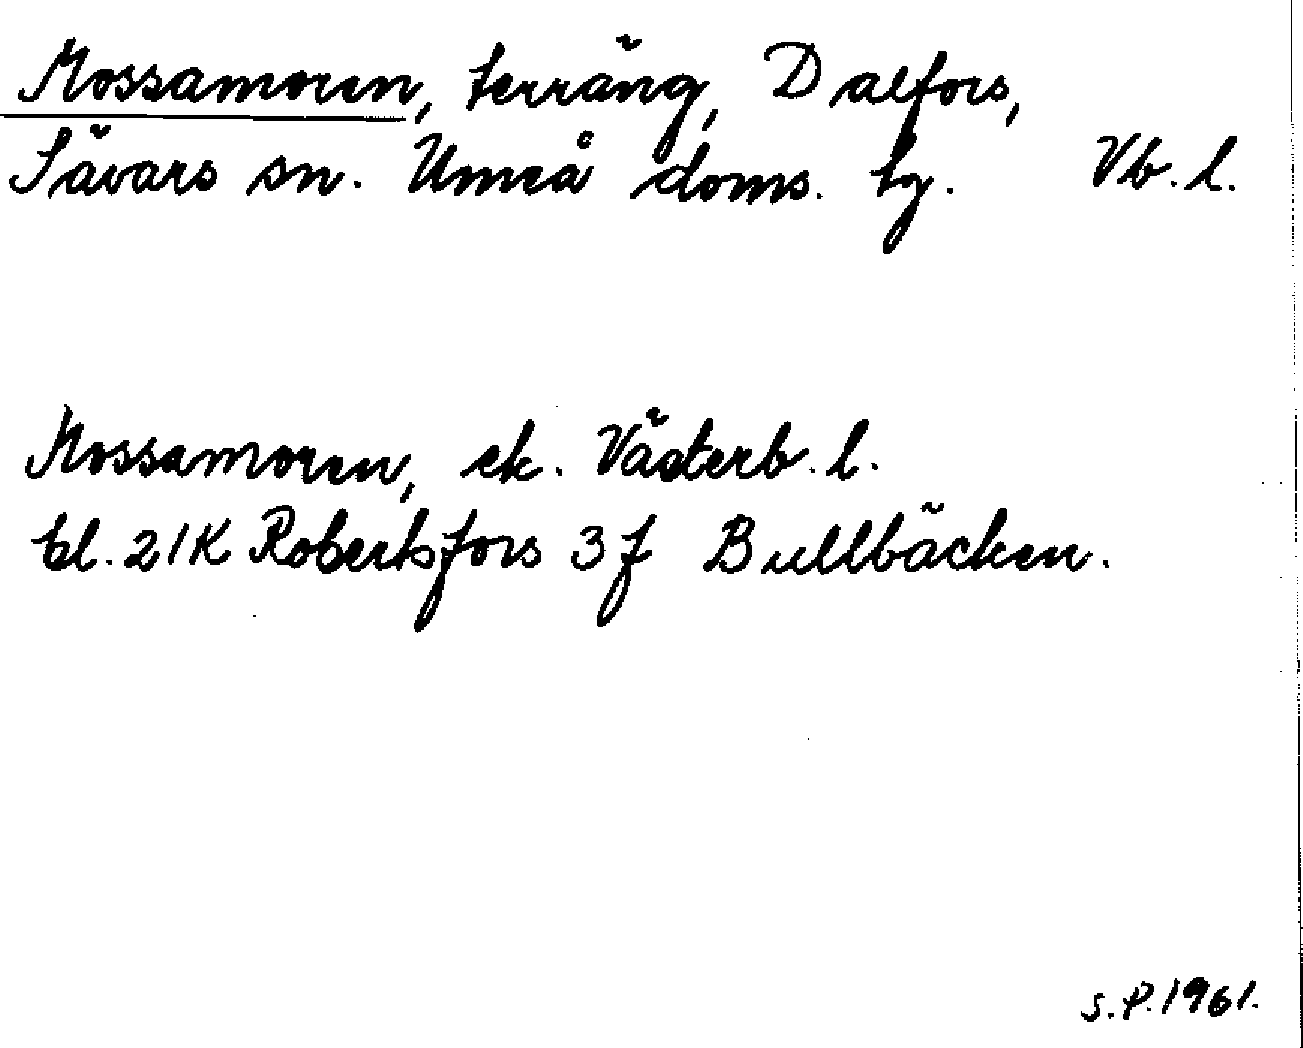 Mossamoren, terräng, Dalfors,
Sävars sn. Umeå doms. tg. Vb. l.
Mossamoren, ek. Västerb. l.
bl. 21K Robertsfors 3f Bullbäcken.
S.P. 1961.